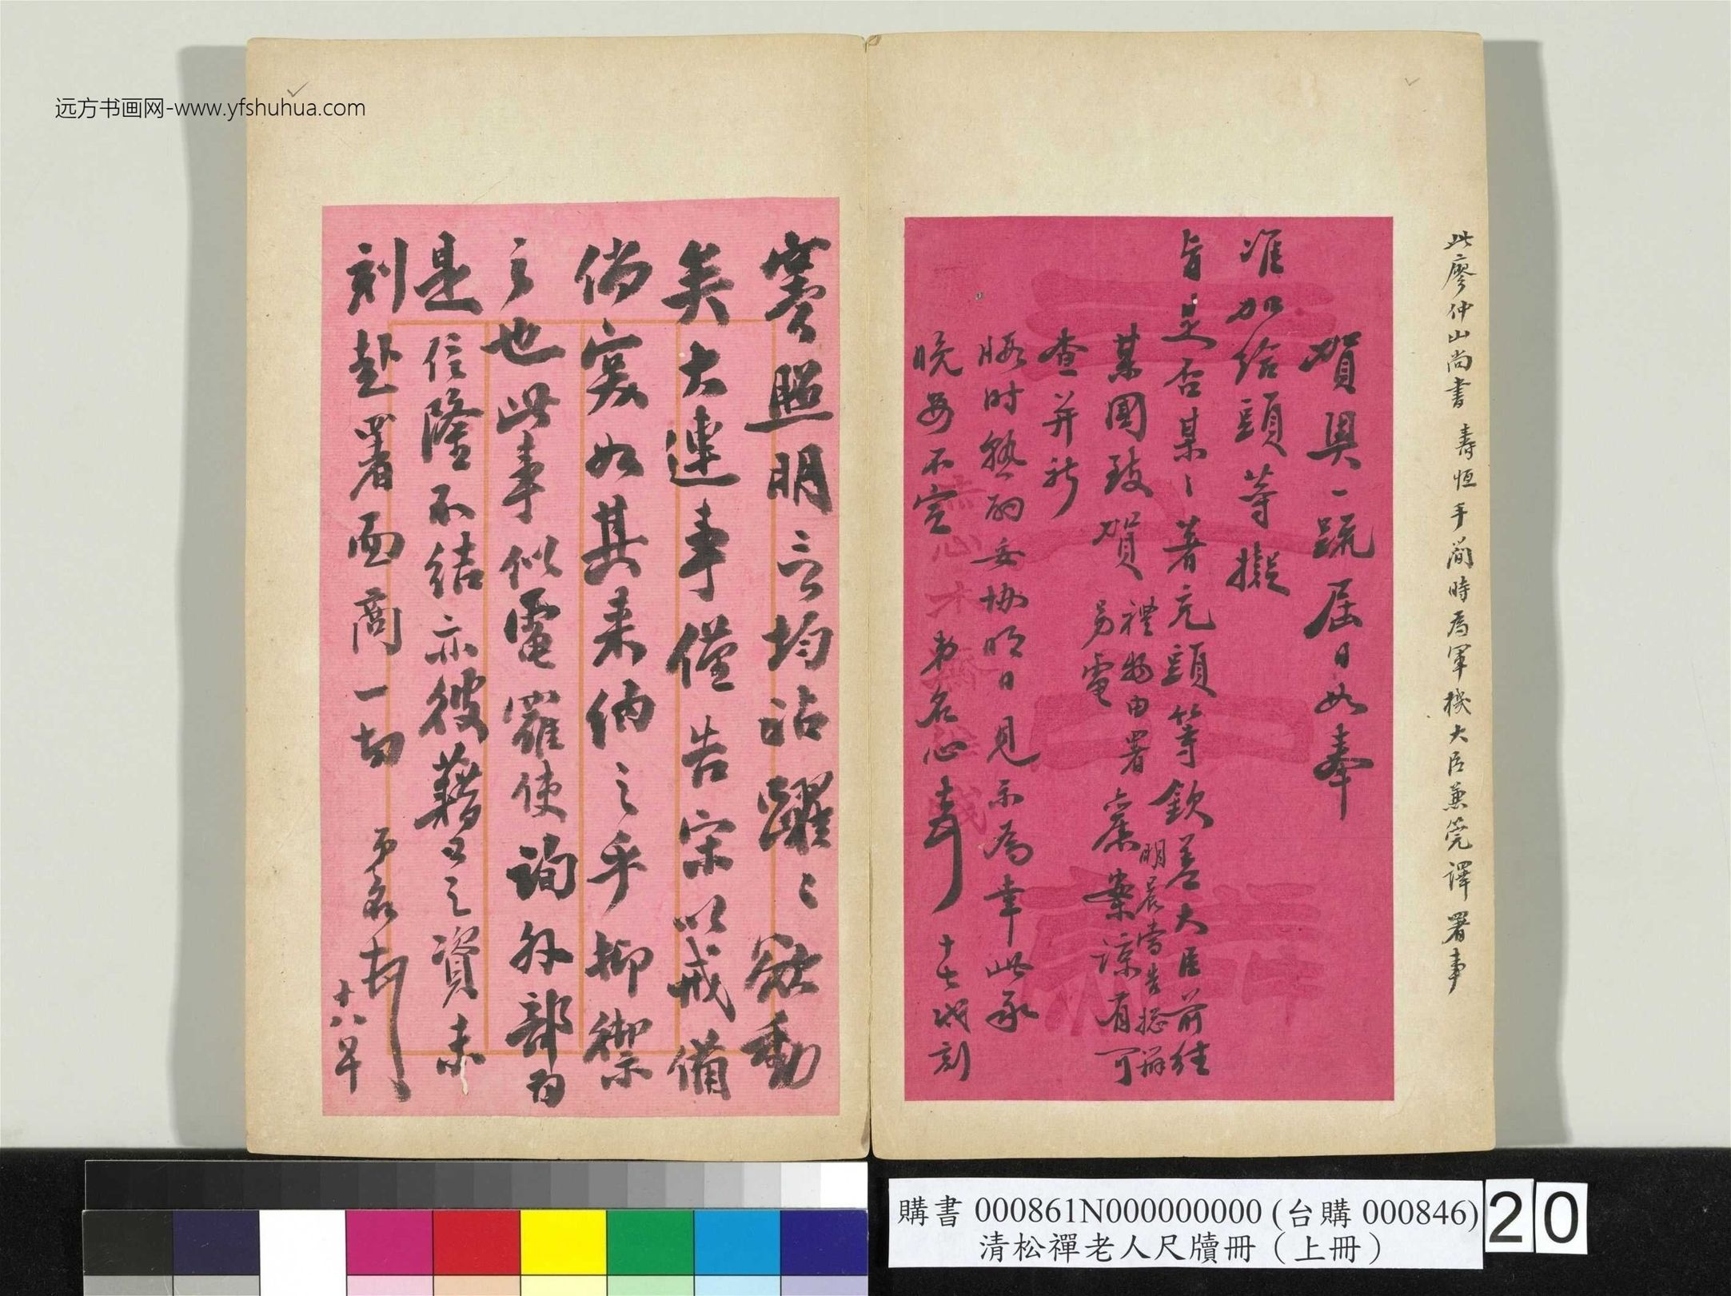 远方书画网-www.yfshuhua.com
此廖仲山尚書 壽恒手簡時為軍機大臣兼筦譯署事
賀奥一疏届日必奉
准加給頭等擬
旨是否某〻著充頭等欽差大臣前往
某國致賀 禮物由署 明晨當告總辦
另電 稟案諒有可
查并祈
時熱 妥協明日見示為幸此承
晚安不宣 弟名心 十七戌刻
寥照明言均站躍〻欲動
矣大連事僅告宋以戒備
倘突如其来納之乎抑禦
之也此事似電羅使詢外部為
是信隆不結亦彼藉口之資未
刻赴署面商一切 十八早
購書 000861N000000000 (台購 000846)
清松禪老人尺牘冊（上冊）
20